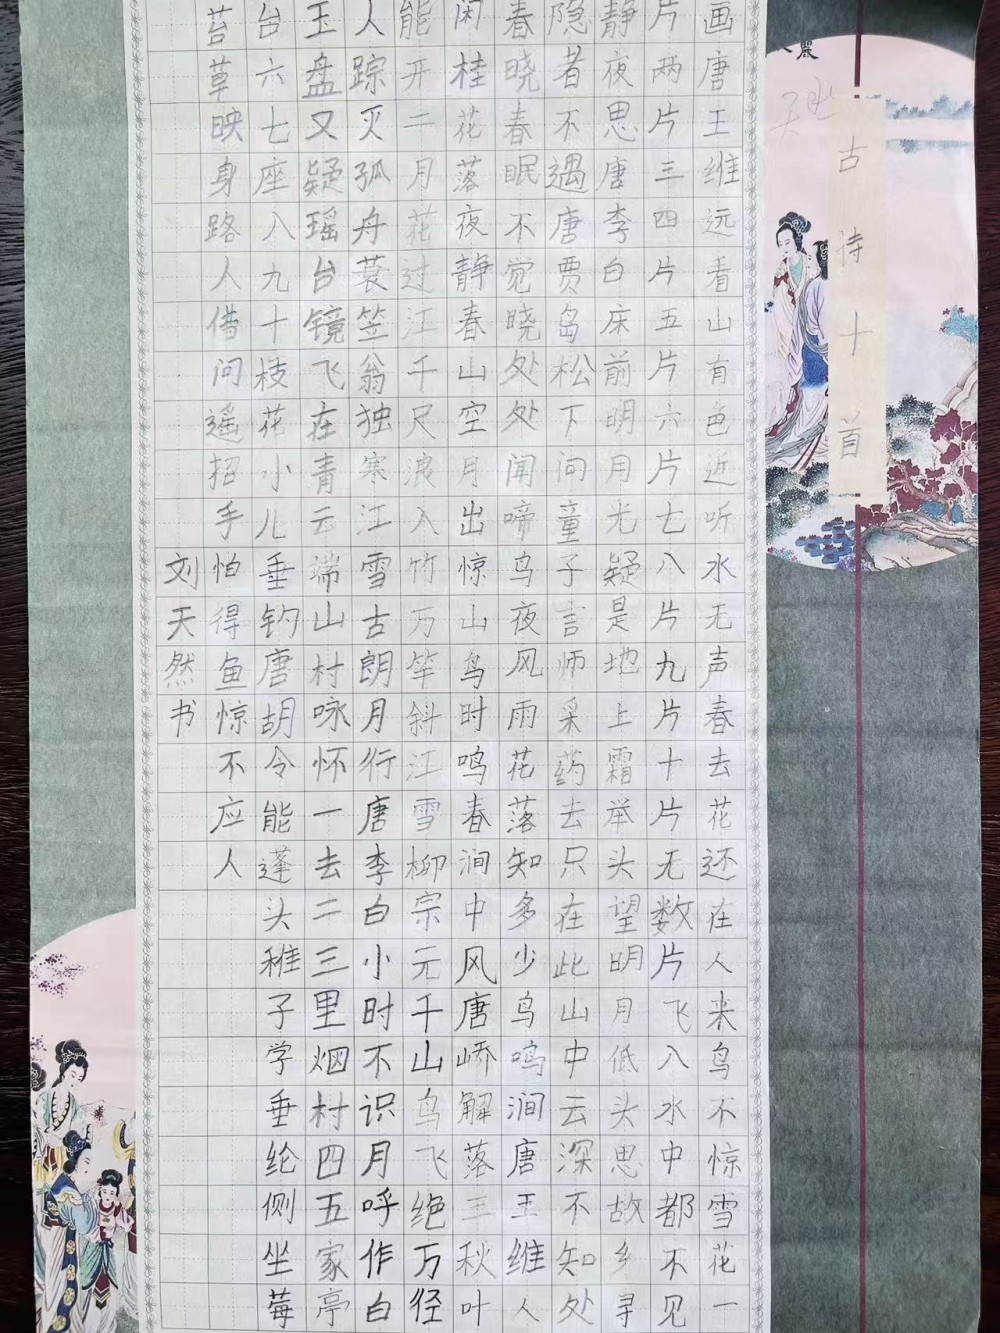 古诗十首
画唐王维远看山有色近听水无声春去花还在人来鸟不惊雪花一
片两片三四片五片六片七八片九片十片无数片飞入水中都不见
静夜思唐李白床前明月光疑是地上霜举头望明月低头思故乡寻
隐者不遇唐贾岛松下问童子言师采药去只在此山中云深不知处
春晓春眠不觉晓处处闻啼鸟夜风雨花落知多少鸟鸣涧唐王维人
闲桂花落夜静春山空月出惊山鸟时鸣春涧中风唐峤解落三秋叶
能开二月花过江千尺浪入竹万竿斜江雪柳宗元千山鸟飞绝万径
人踪灭孤舟蓑笠翁独寒江雪古朗月行唐李白小时不识月呼作白
玉盘又疑瑶台镜飞在青云端山村咏怀一去二三里烟村四五家亭
台六七座八九十枝花小儿垂钓唐胡令能蓬头稚子学垂纶侧坐莓
苔草映身路人借问遥招手怕得鱼惊不应人
刘天然书